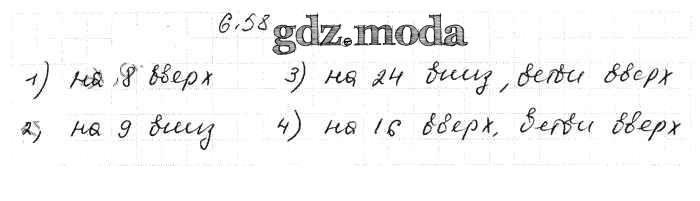 6.58 gdz.moda
1) на 8 вверх 3) на 24 вниз, ветви вверх
2) на 9 вниз 4) на 16 вверх, ветви вверх